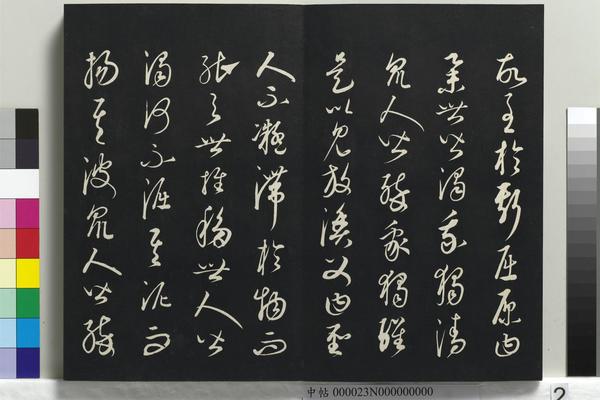 故至於斯屈原曰
舉世皆濁我獨清
眾人皆醉我獨醒
是以見放漁父曰聖
人不凝滯於物而
能與世推移世人皆
濁何不淈其泥而
揚其波眾人皆醉
中帖 000023N000000000
2